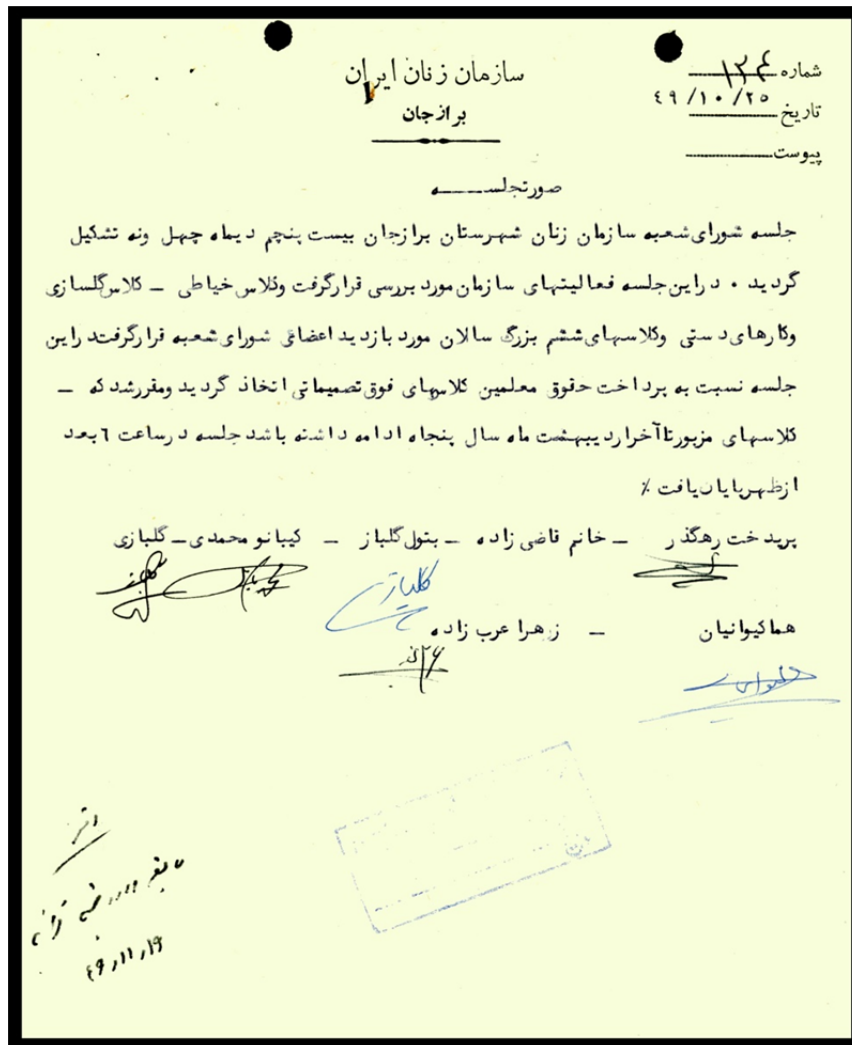 سازمان زنان ایران
برازجان
شماره ۱۲۴
تاریخ ۴۹/۱۰/۲۵
پیوست
صورتجلسه
جلسه شورای شعبه سازمان زنان شهرستان برازجان بیست پنجم دیماه چهل ونه تشکیل
گردید . دراین جلسه فعالیتهای سازمان مورد بررسی قرارگرفت وکلاس خیاطی - کلاس گلسازی
وکارهای دستی وکلاسهای ششم بزرگ سالان مورد بازدید اعضای شورای شعبه قرارگرفت دراین
جلسه نسبت به پرداخت حقوق معلمین کلاسهای فوق تصمیماتی اتخاذ گردید ومقررشد که -
کلاسهای مزبورتاآخراردیبهشت ماه سال پنجاه ادامه داشته باشد جلسه درساعت ۶ بعد
ازظهرپایان یافت ٪
پریدخت رهگذر - خانم قاضی زاده - بتول گلباز - کیبانو محمدی - گلبازی
گلبازی
هماکیوانیان - زهرا عرب زاده
۴۹/۱۱/۱۹